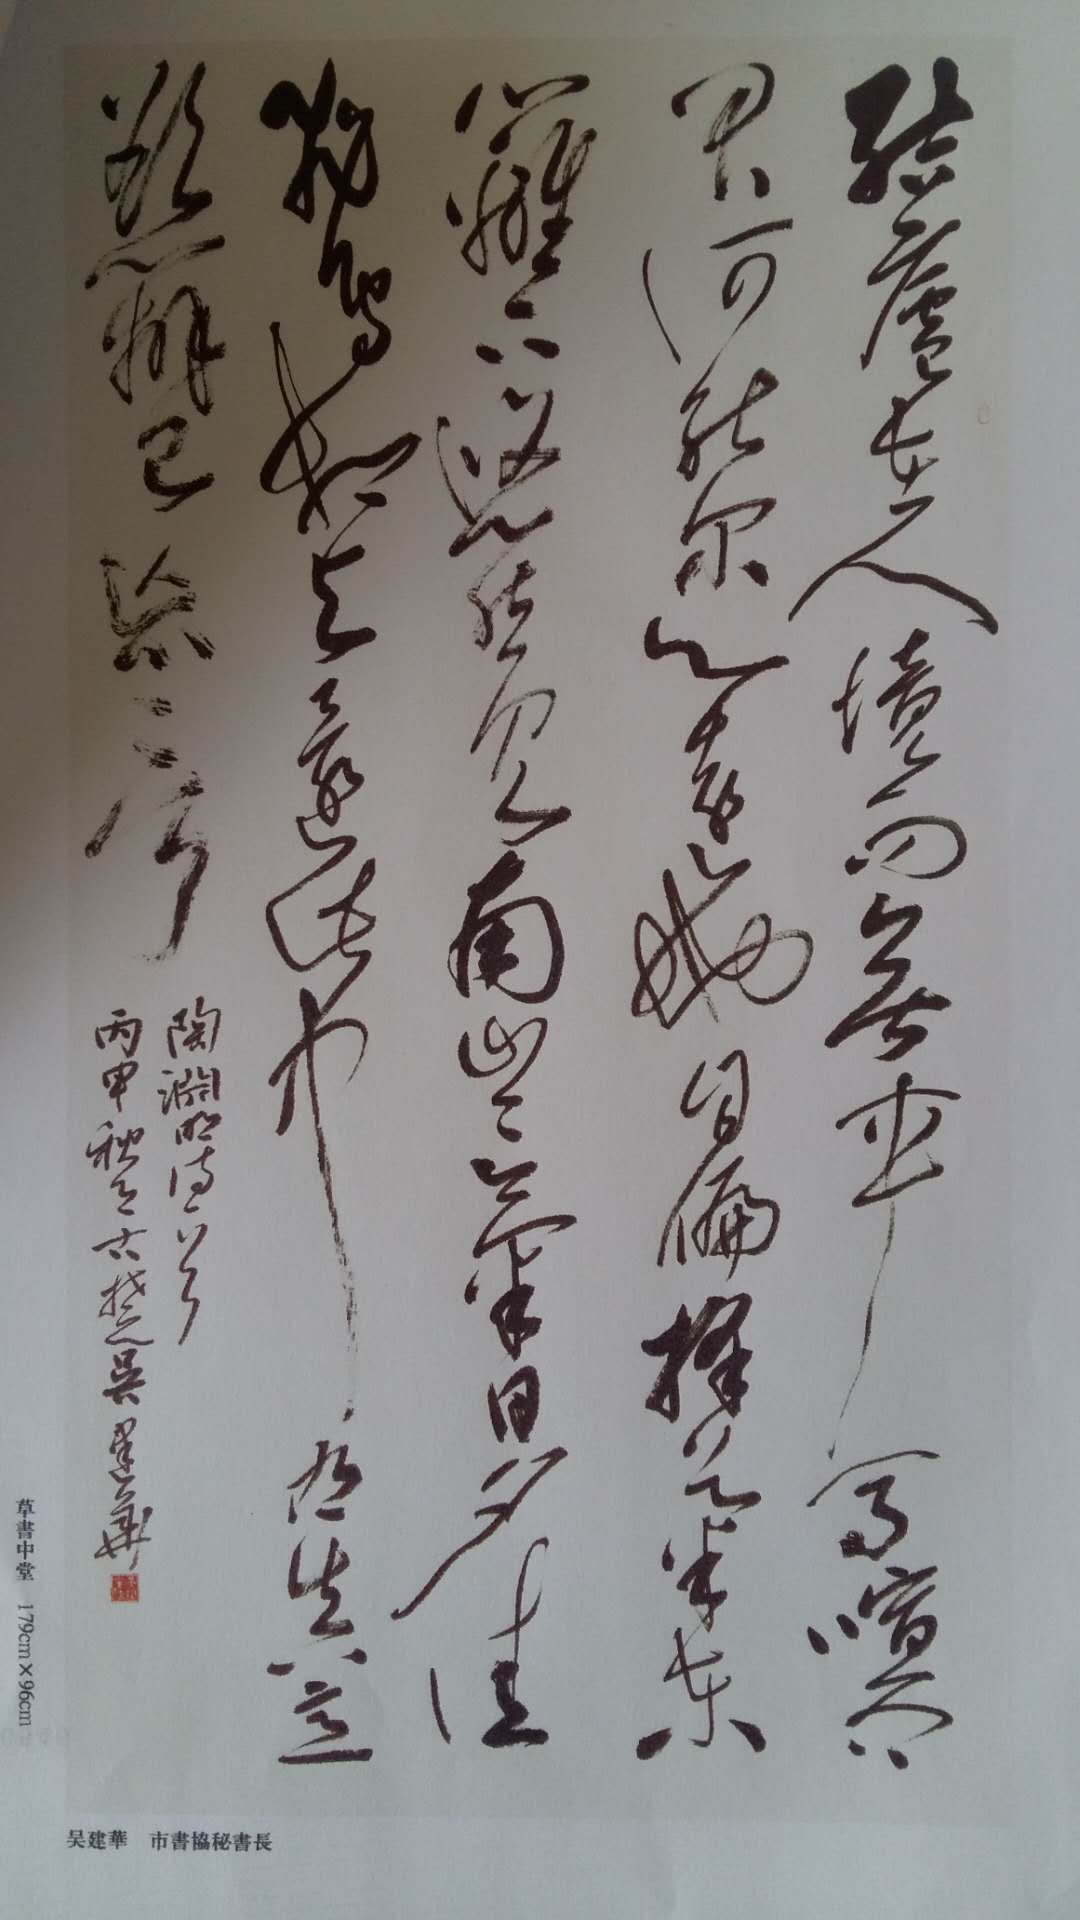 結廬在人境而無車馬喧問
君何能尔心遠地自偏擇菊東
籬下悠然見南山山氣日夕佳
飛鳥相與還此中有真意
慾辨已忘言
陶淵明詩一首
丙申秋 古楚吳建華
草書中堂 179cm×96cm
吴建華 市書協秘書長